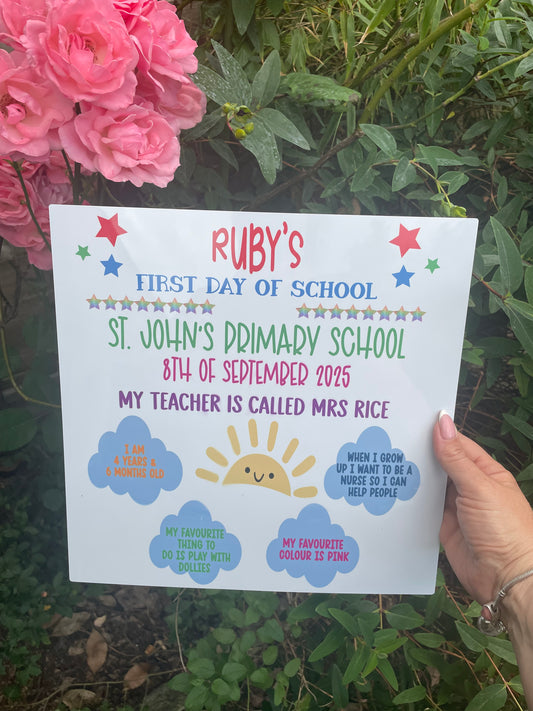 RUBY'S
FIRST DAY OF SCHOOL
ST. JOHN'S PRIMARY SCHOOL
8TH OF SEPTEMBER 2025
MY TEACHER IS CALLED MRS RICE
I AM
4 YEARS &
6 MONTHS OLD
WHEN I GROW
UP I WANT TO BE A
NURSE SO I CAN
HELP PEOPLE
MY FAVOURITE
THING TO
DO IS PLAY WITH
DOLLIES
MY FAVOURITE
COLOUR IS PINK